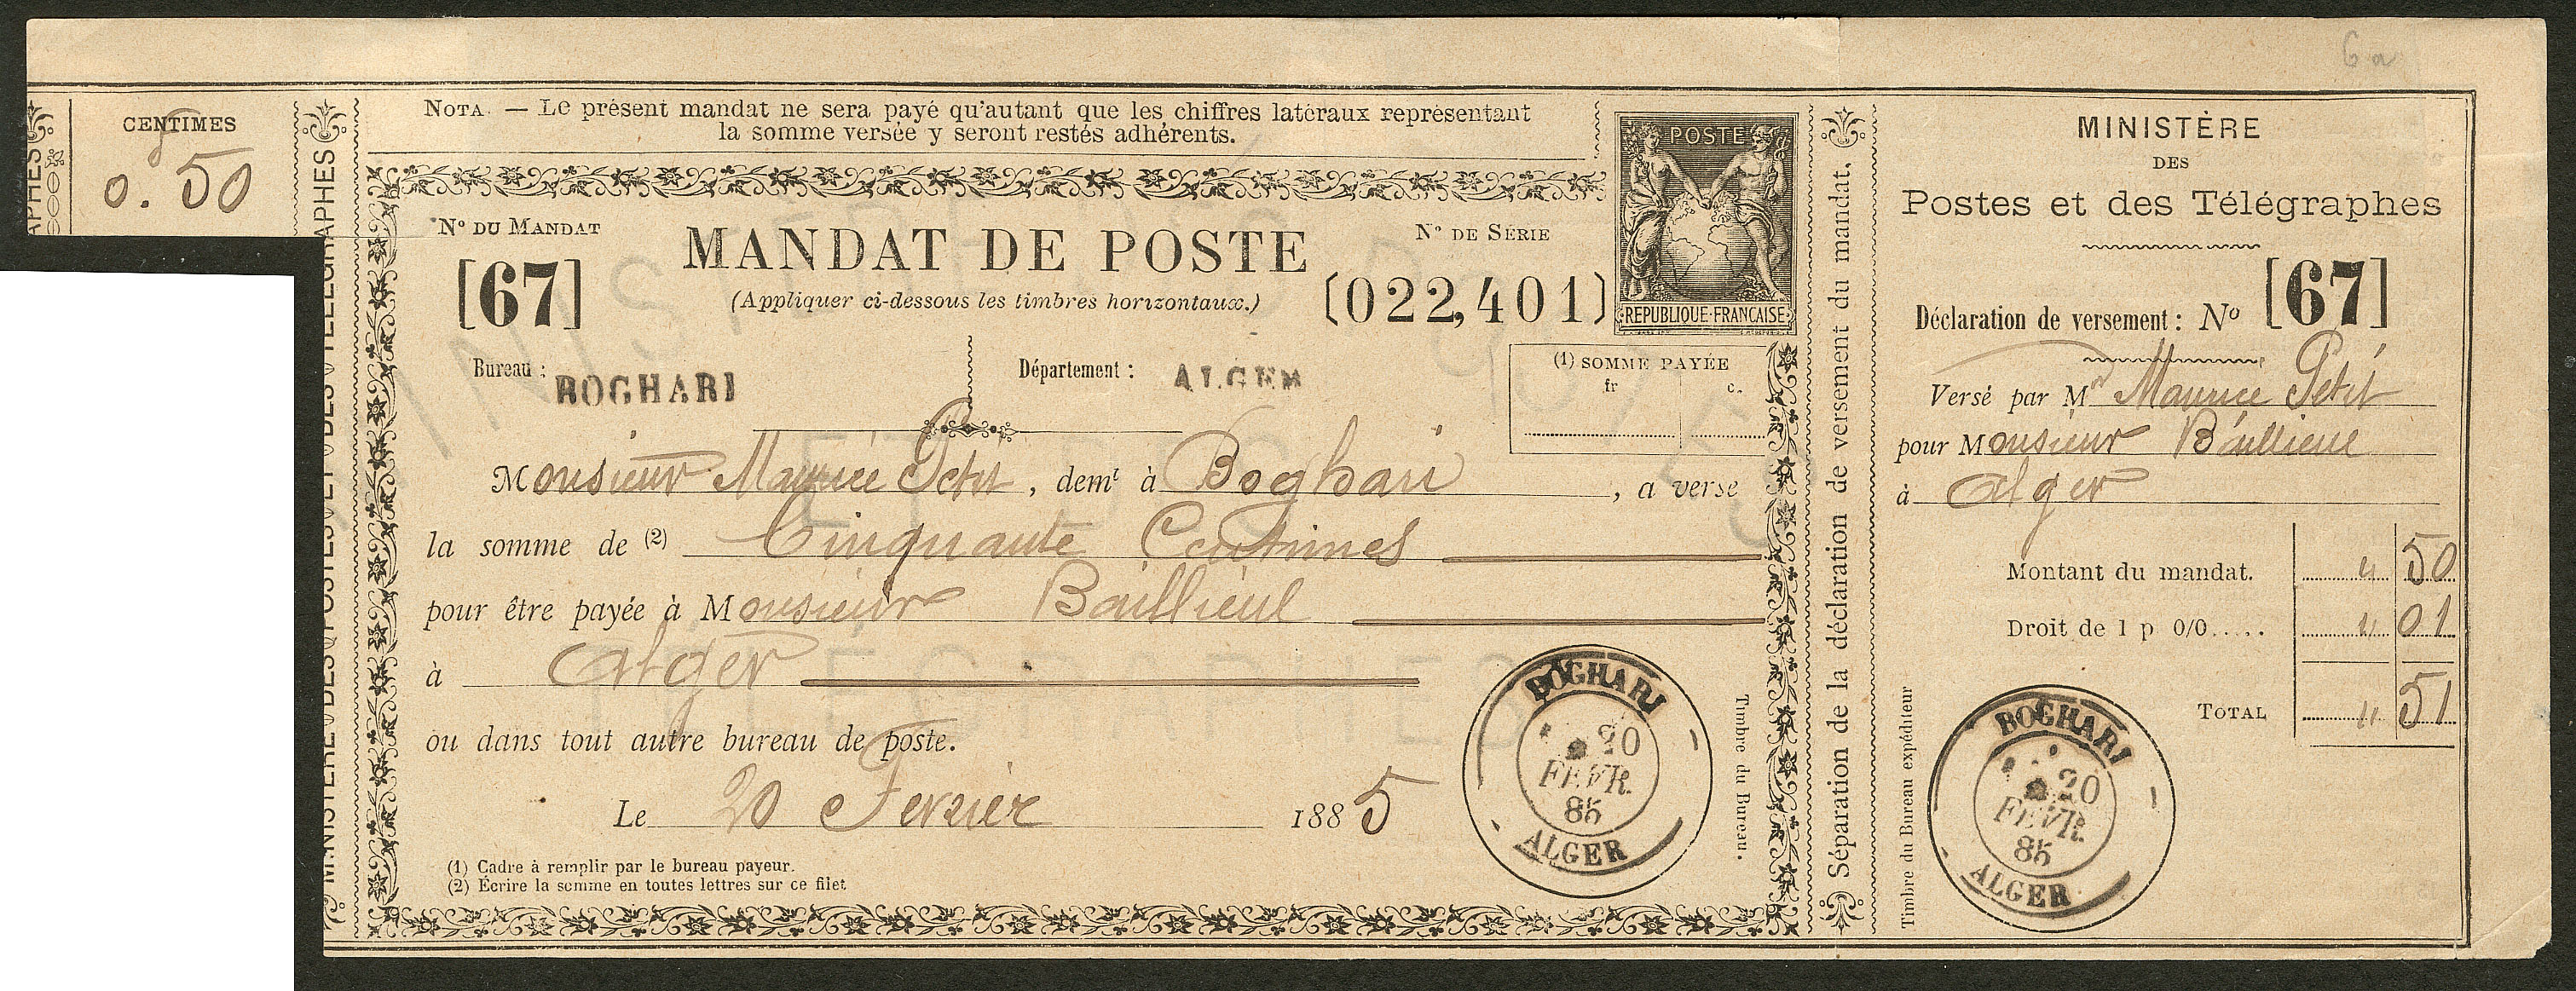 6a
CENTIMES
0.50
NOTA. — Le présent mandat ne sera payé qu'autant que les chiffres latéraux représentant
la somme versée y seront restés adhérents.
POSTE
REPUBLIQUE·FRANÇAISE
N° DU MANDAT
[67]
MANDAT DE POSTE
(Appliquer ci-dessous les timbres horizontaux.)
N° DE SÉRIE
(022,401)
Bureau : BOGHARI
Département : ALGER
(1) SOMME PAYÉE
fr c.
Monsieur Maurice Petit, demt à Boghari, a versé
la somme de (2) Cinquante Centimes
pour être payée à Monsieur Baillieul
à Alger
ou dans tout autre bureau de poste.
Le 20 Fevrier 1885
(1) Cadre à remplir par le bureau payeur.
(2) Écrire la somme en toutes lettres sur ce filet
BOGHARI
20
FEVR.
85
ALGER
Timbre du Bureau.
MINISTÈRE DES POSTES ET DES TÉLÉGRAPHES
APHES
Séparation de la déclaration de versement du mandat.
MINISTÈRE
DES
Postes et des Télégraphes
Déclaration de versement : N° [67]
Versé par Mr Maurice Petit
pour Monsieur Baillieul
à Alger
Montant du mandat. " 50
Droit de 1 p 0/0..... " 01
TOTAL " 51
Timbre du Bureau expéditeur
BOGHARI
20
FEVR.
85
ALGER